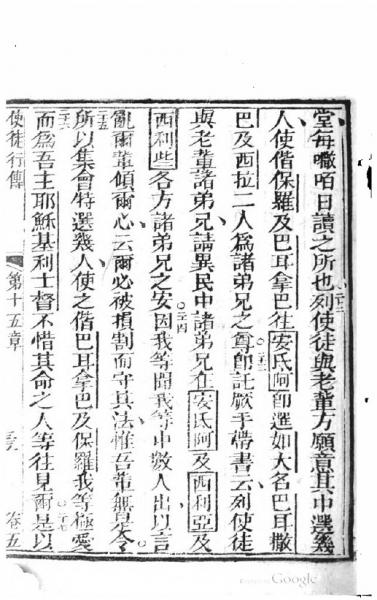 堂每𠾐咟日讀之所也列使徒與老輩方願意其中選幾
人使偕保羅及巴耳拿巴往安氐阿卽選如大名巴耳撒
巴及西拉二人爲諸弟兄之尊卽託厥手帶書云列使徒
與老輩諸弟兄請異民中諸弟兄在安氐阿及西利亞及
西利些各方諸弟兄之安因我等聞我等中數人出以言
亂爾輩傾爾心云爾必被損割而守其法惟吾輩無是令
所以集會特選幾人使之偕巴耳拿巴及保羅我等極愛
而爲吾主耶穌基利士督不惜其命之人等往見爾是以
使徒行傳 第十五章 卷五
Google